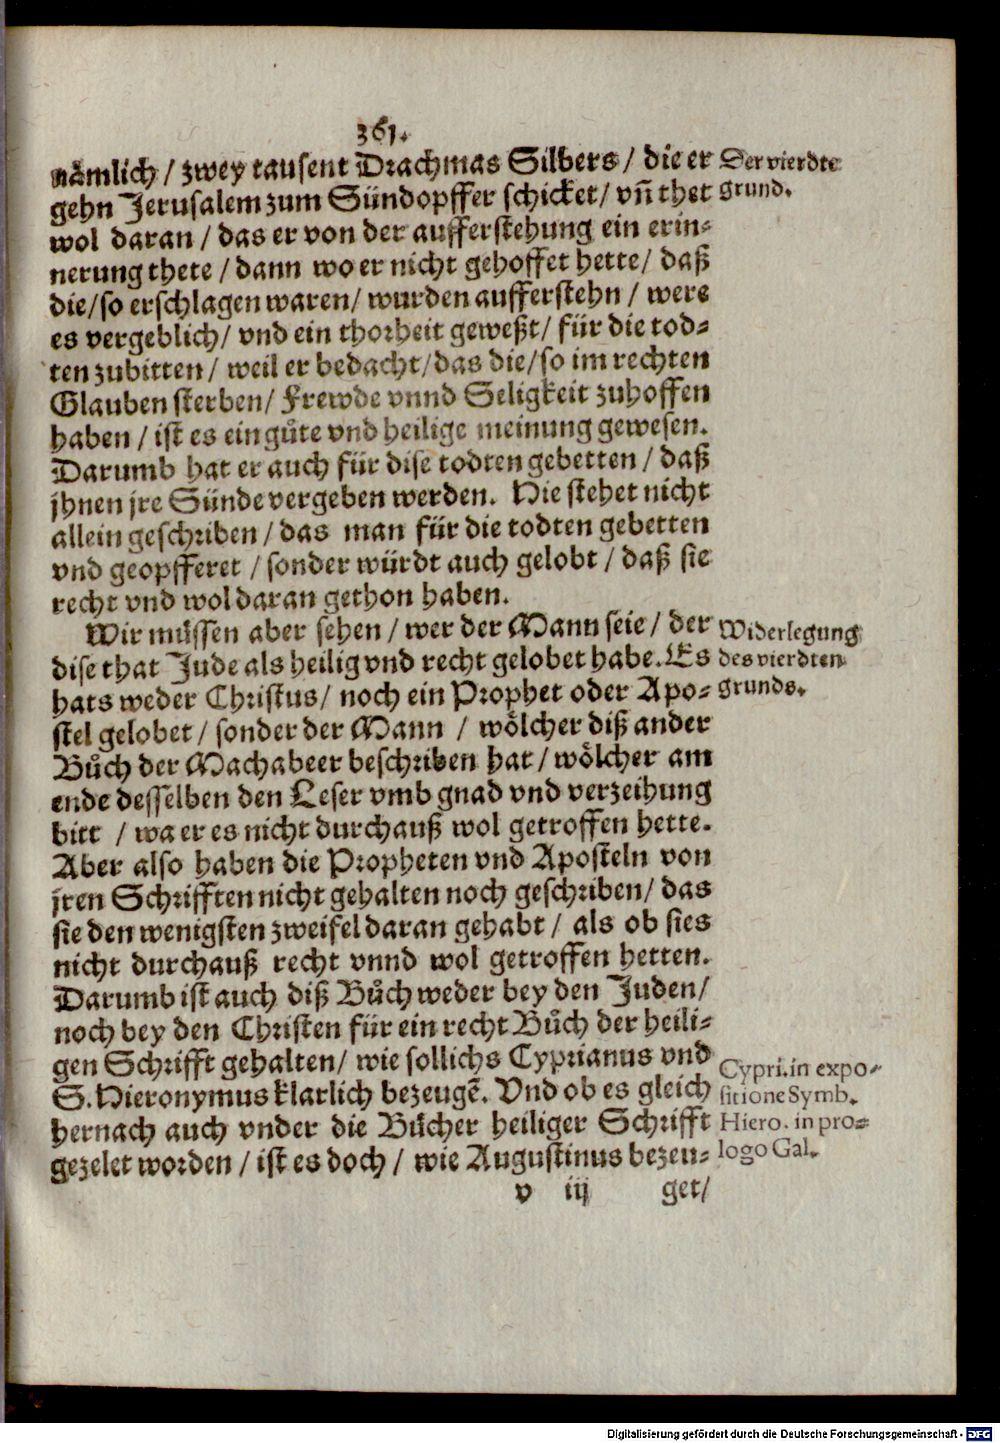 361.
nämlich / zwey tausent Drachmas Silbers / die er
gehn Jerusalem zum Sündopffer schicket / vn̄ thet
wol daran / das er von der aufferstehung ein erin-
nerung thete / dann wo er nicht gehoffet hette / daß
die / so erschlagen waren / wurden aufferstehn / were
es vergeblich / vnd ein thorheit geweßt / für die tod-
ten zubitten / weil er bedacht / das die / so im rechten
Glauben sterben / Frewde vnnd Seligkeit zuhoffen
haben / ist es ein gůte vnd heilige meinung gewesen.
Darumb hat er auch für dise todten gebetten / daß
jhnen jre Sünde vergeben werden. Hie stehet nicht
allein geschriben / das man für die todten gebetten
vnd geopfferet / sonder würdt auch gelobt / daß sie
recht vnd wol daran gethon haben.
Der vierdte
grund.
Wir müssen aber sehen / wer der Mann seie / der
dise that Jude als heilig vnd recht gelobet habe. Es
hats weder Christus / noch ein Prophet oder Apo-
stel gelobet / sonder der Mann / wölcher diß ander
Bůch der Machabeer beschriben hat / wölcher am
ende desselben den Leser vmb gnad vnd verzeihung
bitt / wa er es nicht durchauß wol getroffen hette.
Aber also haben die Propheten vnd Aposteln von
jren Schrifften nicht gehalten noch geschriben / das
sie den wenigsten zweifel daran gehabt / als ob sies
nicht durchauß recht vnnd wol getroffen hetten.
Darumb ist auch diß Bůch weder bey den Juden /
noch bey den Christen für ein recht Bůch der heili-
gen Schrifft gehalten / wie sollichs Cyprianus vnd
S. Hieronymus klarlich bezeugē. Vnd ob es gleich
hernach auch vnder die Bücher heiliger Schrifft
gezelet worden / ist es doch / wie Augustinus bezeu-
Widerlegung
des vierdten
grunds.
Cypri. in expo-
sitione Symb.
Hiero. in pro-
logo Gal.
v iij get /
Digitalisierung gefördert durch die Deutsche Forschungsgemeinschaft - DFG